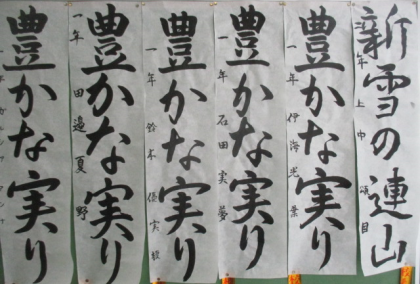 新雪の連山
豊かな実り
一年 伊海光葉
豊かな実り
一年 石田実夢
豊かな実り
一年 鈴木
豊かな実り
一年 田邉夏野
豊かな実り